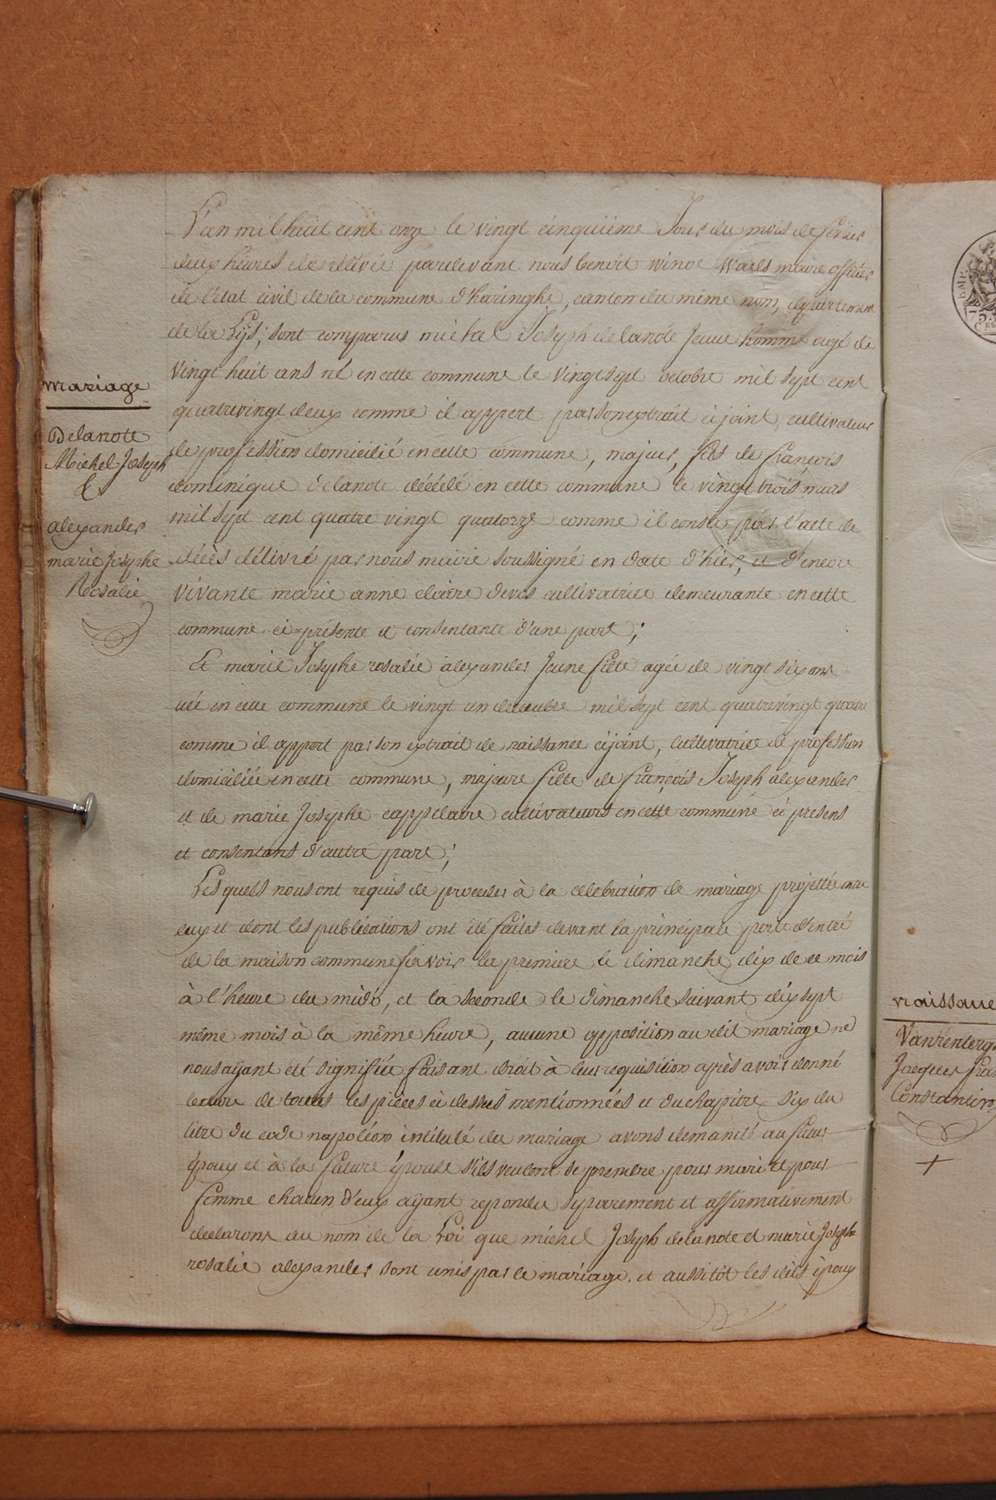 mariage
Delanote
Michel Joseph
&
alexander
marie Josephe
Rosalie
L'an mil huit cent onze le vingt cinquiéme Jour du mois de fevrier
deux heures de rélévée pardevant nous benoit winoc Waels maire officier
de l'état civil de la commune d'haringhe, canton du même nom, département
de la Lys, sont comparus michel Joseph delanote Jeune homme agé de
vingt huit ans né en cette commune le vingt sept octobre mil sept cent
quatrevingt deux comme il appert par son extrait cijoint, cultivateur
de profession domicilié en cette commune, majeur, fils de françois
dominique delanote décédé en cette commune le vingt trois mars
mil sept cent quatre vingt quatorze comme il conste par l'acte de
décès délivré par nous maire soussigné en date d'hier, et d'encore
vivante marie anne claire devos cultivatrice demeurante en cette
commune ci présente et consentante d'une part;
Et marie Josephe rosalie alexander Jeune fille agée de vingt six ans
née en cette commune le vingt un décembre mil sept cent quatrevingt quatre
comme il appert par son extrait de naissance cijoint, cultivatrice de profession
domiciliée en cette commune, majeure fille de françois Joseph alexander
et de marie Josephe cappelaere cultivateurs en cette commune ci présens
et consentans d'autre part;
Lesquels nous ont requis de proceder à la célébration de mariage projetté entre
eux et dont les publications ont été faites devant la principale porte d'entré
de la maison commune savoir la premiere le dimanche dix de ce mois
à l'heure du midi, et la seconde le dimanche suivant dix sept
même mois à la même heure, aucune opposition au dit mariage ne
nous ayant été signifiée faisant droit à leur requisition après avoir donné
lecture de toutes les pièces ci dessus mentionnées et du chapitre six du
titre du code napoléon intitulé du mariage avons demandé au futur
époux et à la future épouse s'ils veulent se prendre pour mari et pour
femme chacun d'eux ayant repondu séparement et affirmativement
declarons au nom de la Loi que michel Joseph delanote et marie Joseph
rosalie alexander sont unis par le mariage. et aussitôt les dits époux
naissance
Jacques
Constantin